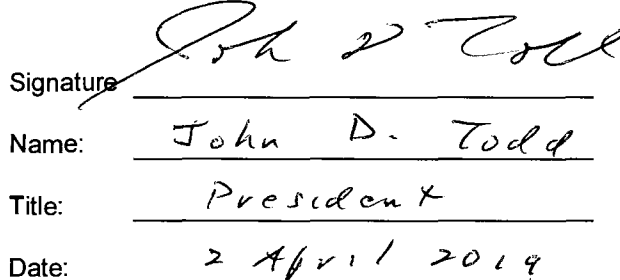 Signature John D Todd
Name: John D. Todd
Title: President
Date: 2 April 2019